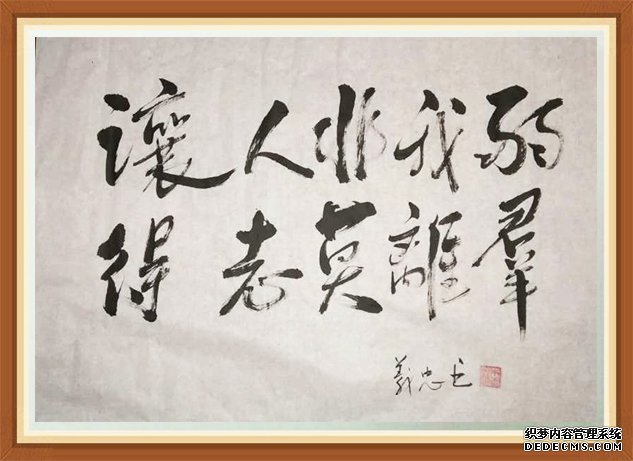 讓人非我弱
得志莫離羣
義忠书
织梦内容管理系统
DEDECMS.COM